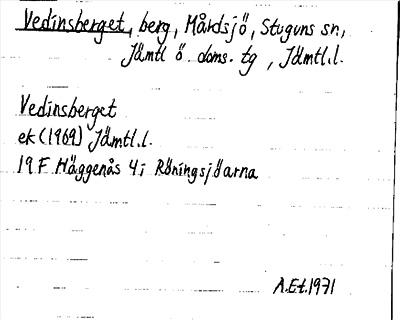 Vedinsberget, berg, Mårdsjö, Stuguns sn,
Jämtl ö. doms. tg, Jämtl.l.
Vedinsberget
ek (1969) Jämtl.l.
19 F Häggenås 4 i Röningsjöarna
A.Et. 1971